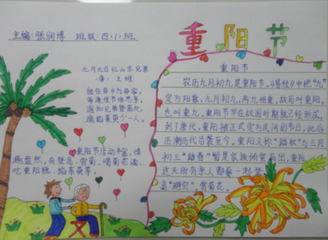 主编:张润博 班级:四(1)班
重阳节
九月九日忆山东兄弟
(唐) 王维
独在异乡为异客,
每逢佳节倍思亲。
遥知兄弟登高处,
遍插茱萸少一人。
重阳节活动丰富,情
趣盎然,有登高、赏菊、喝菊花酒、
吃重阳糕、插茱萸等。
重阳节
农历九月初九是重阳节,《易经》中把“九”
定为阳数,九月初九,两九相重,故而叫重阳,
也叫重九。重阳节早在战国时期就已经形成,
到了唐代,重阳被正式定为民间的节日,此后
历朝历代沿袭至今。重阳又称“踏秋”与三月
初三“踏春”皆是家族倾室而出,重阳
这天所有亲人都要一起登
“避灾”,赏菊花。